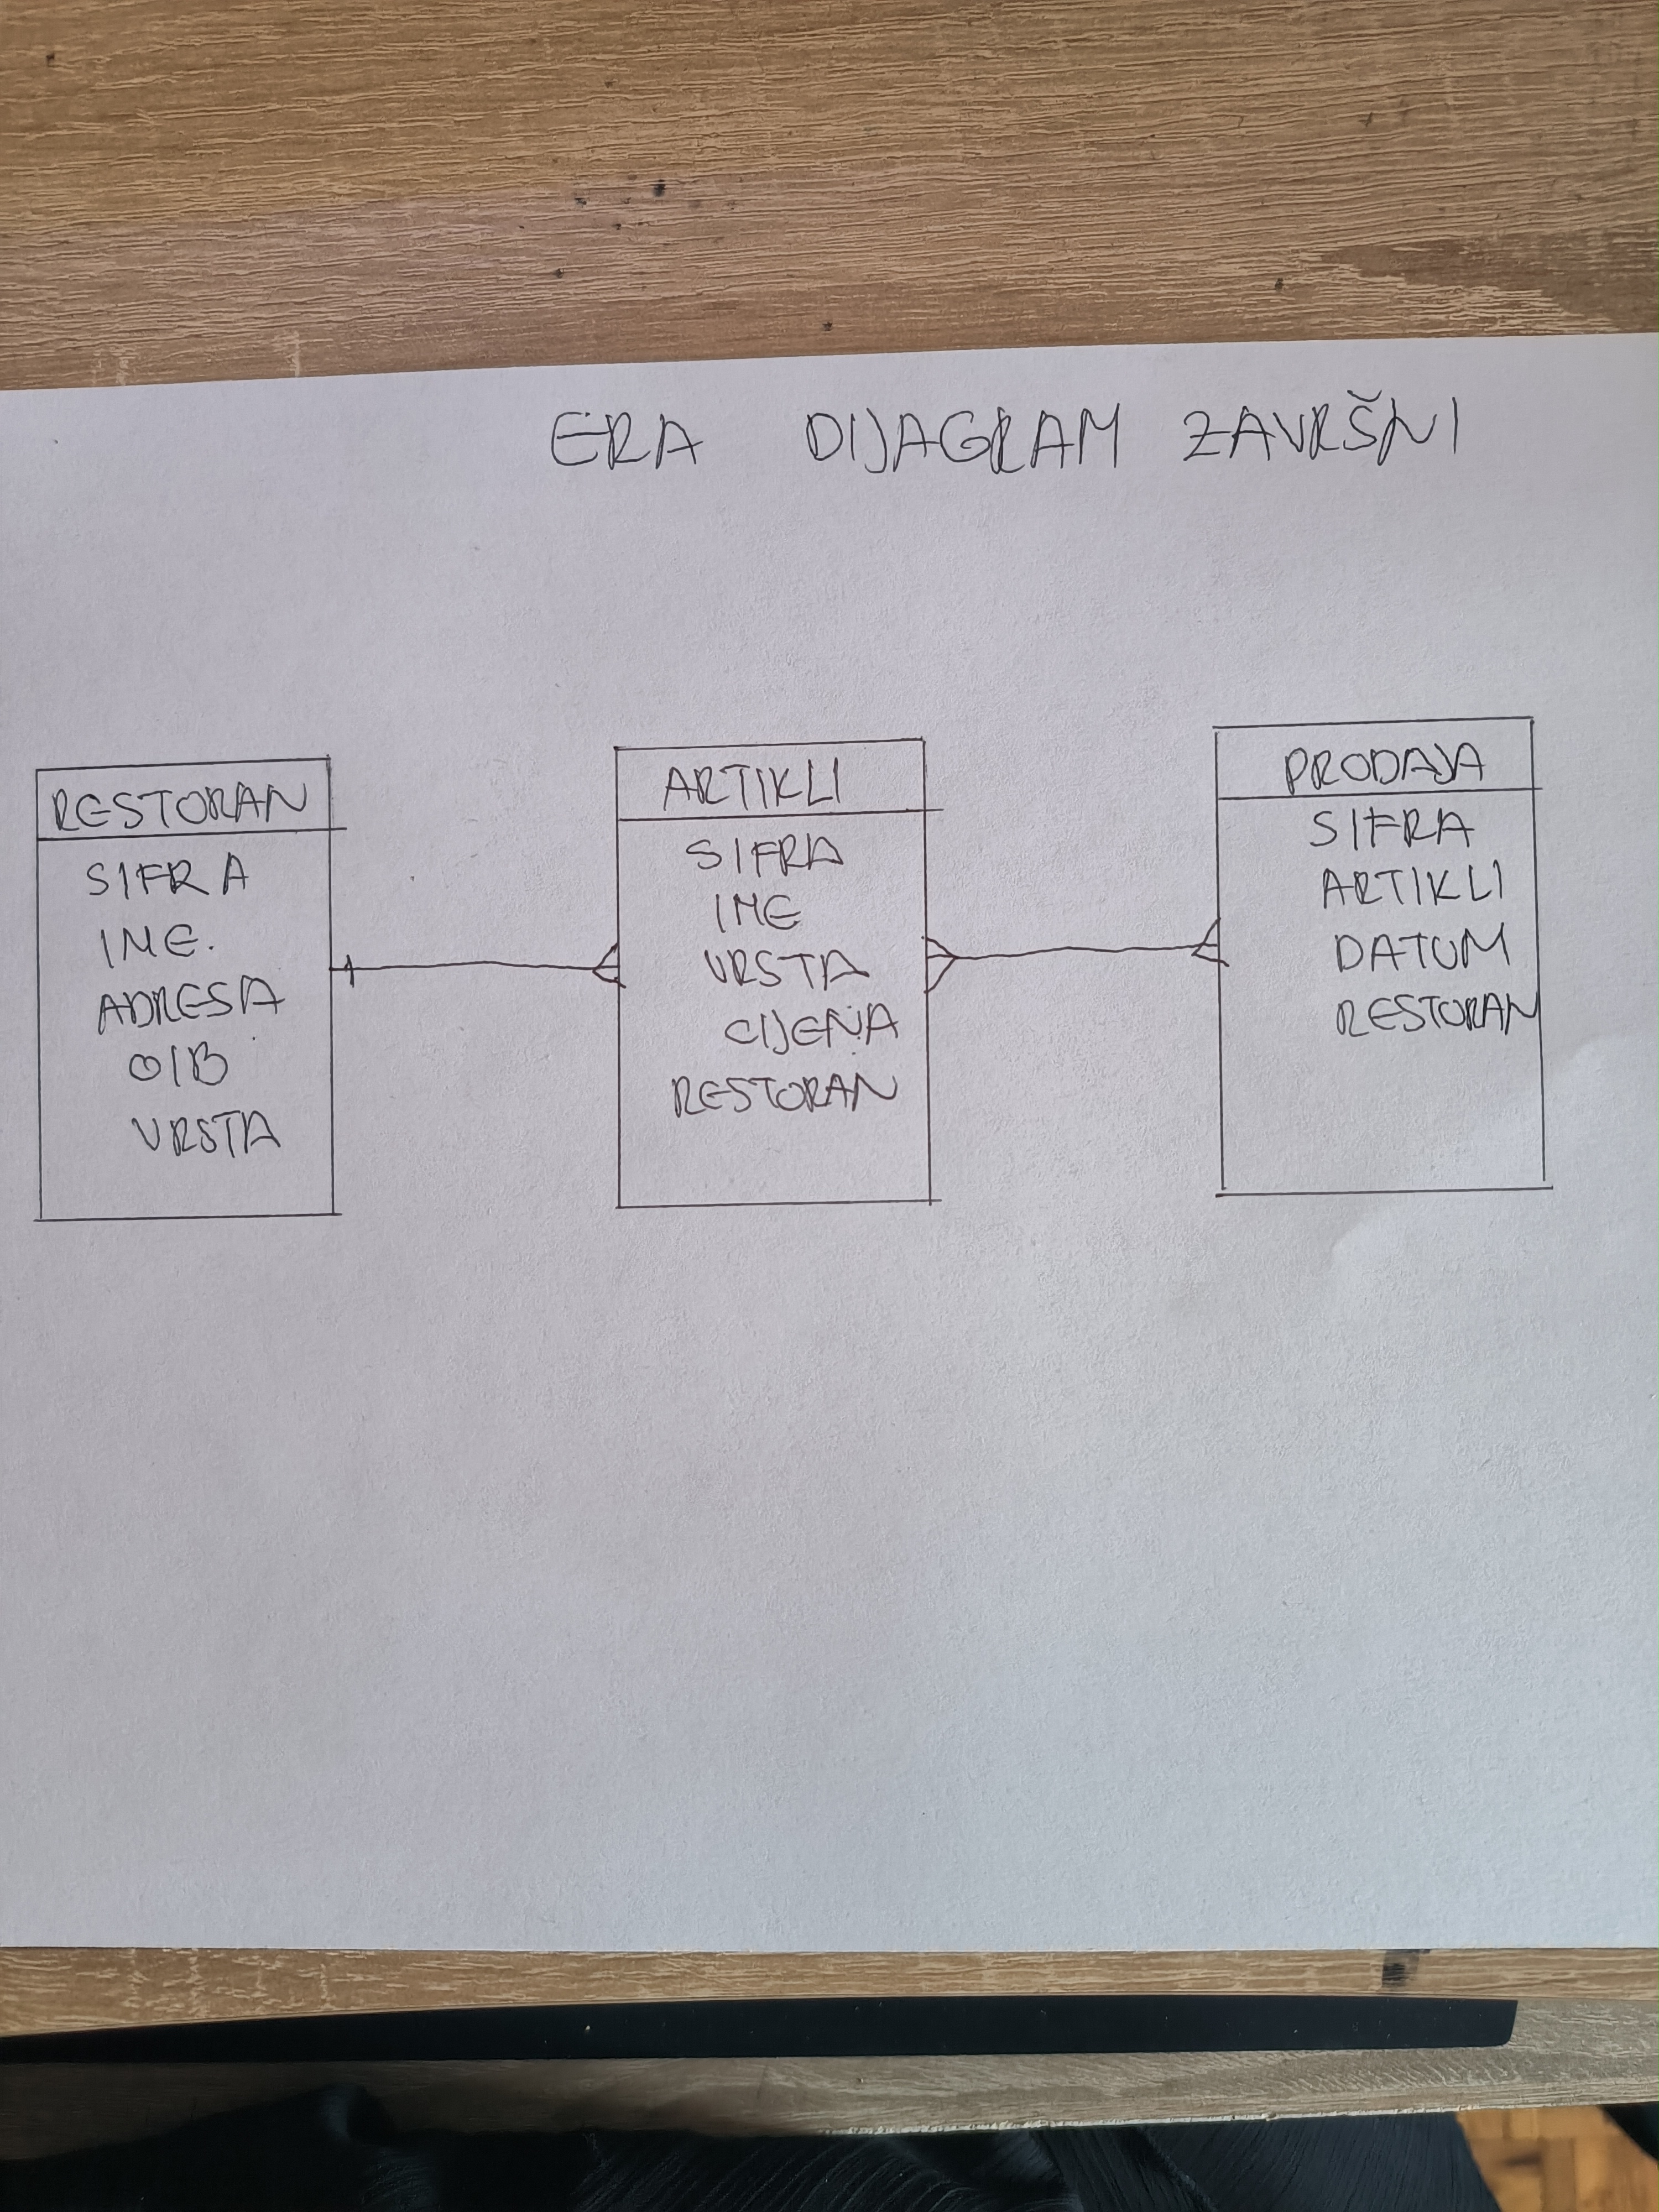 ERA DIJAGRAM ZAVRŠNI
RESTORAN
SIFRA
IME.
ADRESA
OIB
VRSTA
ARTIKLI
SIFRA
IME
VRSTA
CIJENA
RESTORAN
PRODAJA
SIFRA
ARTIKLI
DATUM
RESTORAN